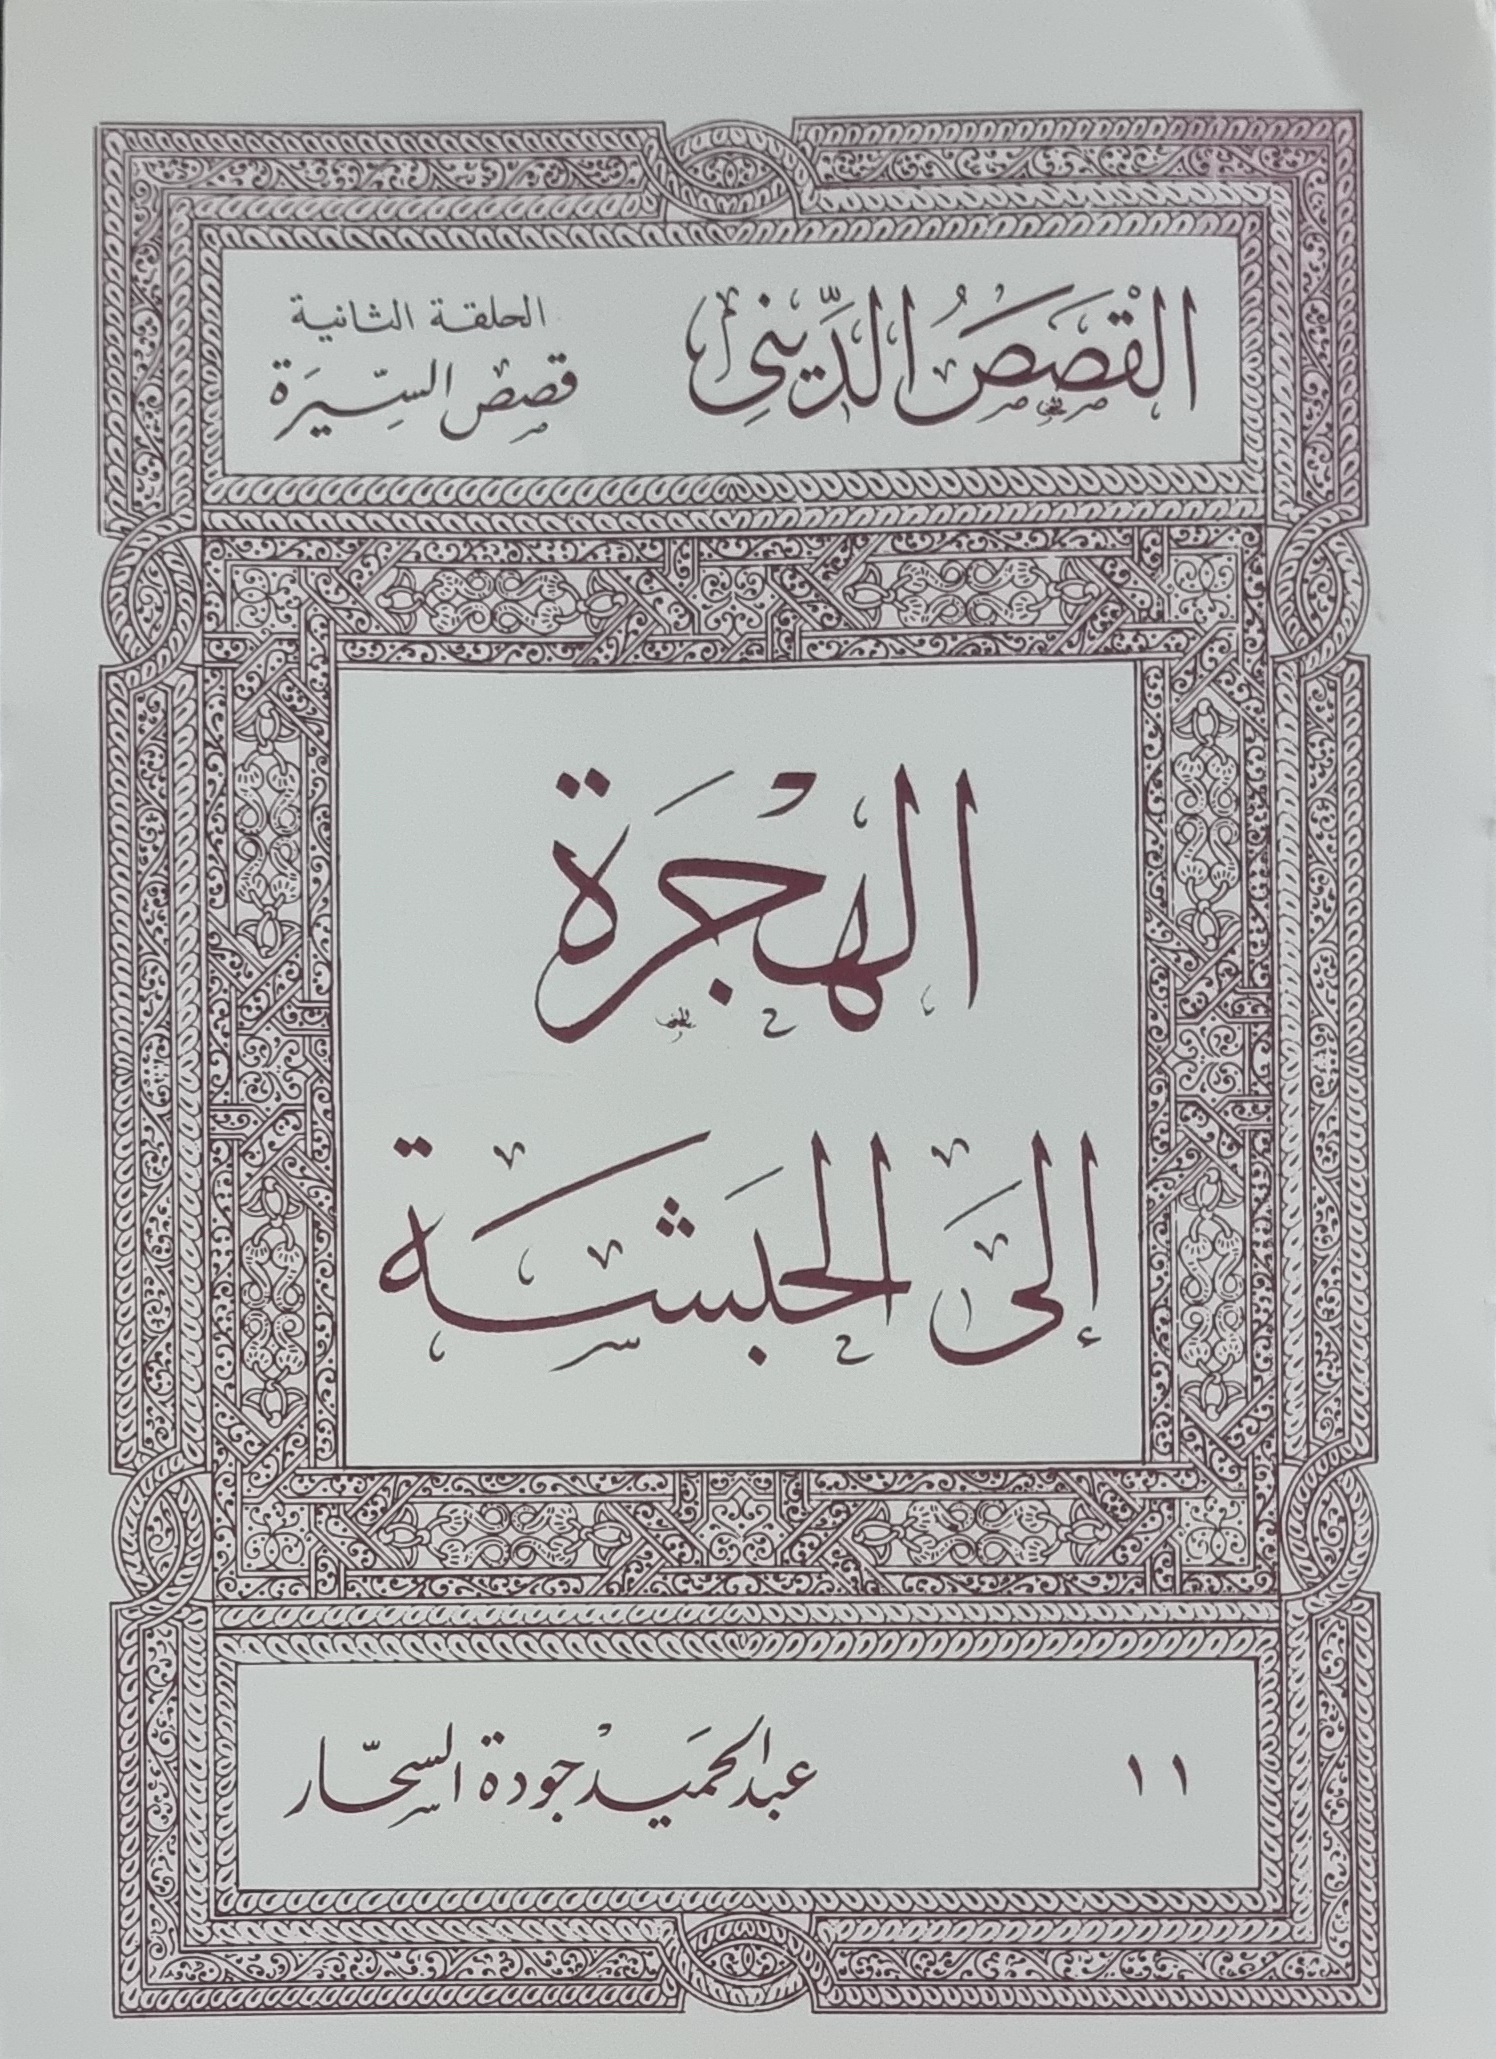 القَصَصُ الدِّينِى
الحلقة الثانية
قصص السِّيرَة
الهِجْرَة
إلَى الحَبَشَة
١١
عبد الحَميْد جودة السحّار